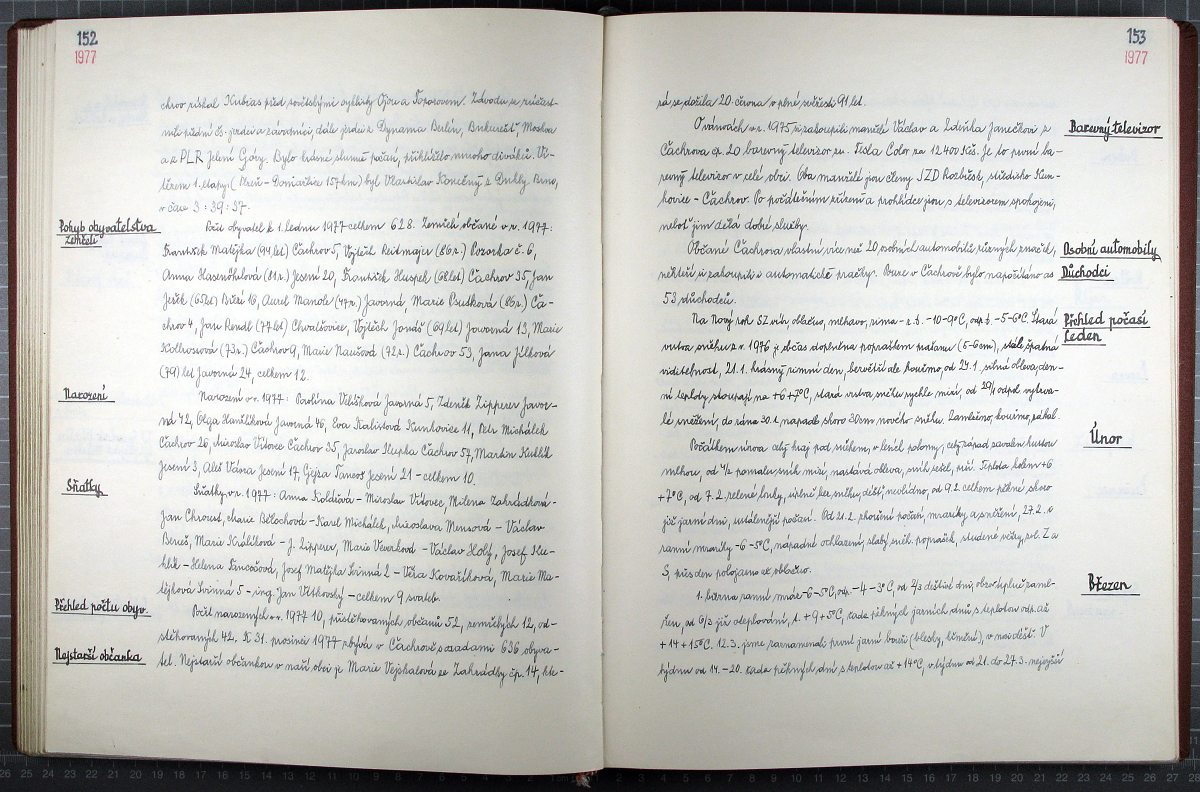 152
1977
chrov získal Kubias před sovětskými cyklisty Ojou a Toporovem. Závodu se zúčast-
nili přední čs. jezdci a závodníci, dále jezdci z Dynama Berlín, Bukurešť, Moskva
a z PLR Jelení Góry. Bylo krásné slunné počasí, přihlíželo mnoho diváků. Ví-
tězem 1. etapy (Plzeň - Domažlice 157 km) byl Vlastislav Konečný z Dukly Brno,
v čase 3:39:37.
Pohyb obyvatelstva
Zemřelí
Počet obyvatel k 1. lednu 1977 celkem 628. Zemřelí občané v r. 1977:
František Matějka (94 let) Čáchrov 5, Vojtěch Reitmajer (86 r.) Kozarka č. 6,
Anna Hasenöhrlová (81 r.) Jesení 20, František Huspek (68 let) Čáchrov 35, Jan
Ješek (65 let) Bížží 16, Aurel Manole (47 r.) Javorná, Marie Psutková (86 r.) Čá-
chrov 4, Jan Rendl (77 let) Chvalšovice, Vojtěch Jonáš (69 let) Javorná 13, Marie
Kollrosová (73 r.) Čáchrov 9, Marie Naušová (72 r.) Čáchrov 53, Jana Jílková
(79) let Javorná 24, celkem 12.
Narození
Narození v r. 1977: Pavlína Velíšková Javorná 5, Zdeněk Zipperer Javor-
ná 42, Olga Hanzlíková Javorná 46, Eva Kalistová Kunkovice 11, Petr Michálek
Čáchrov 26, Miroslav Vítovec Čáchrov 35, Jaroslav Klupka Čáchrov 57, Martin Kuklík
Jesení 3, Aleš Vávra Jesení 17, Gejza Tancoš Jesení 21 - celkem 10.
Sňatky
Sňatky v r. 1977: Anna Koldušová - Miroslav Vítovec, Milena Zahrádková -
Jan Chroust, Marie Bělochová - Karel Michálek, Miroslava Mensová - Václav
Beneš, Marie Králíková - J. Zipperer, Marie Veverková - Václav Holý, Josef Ku-
klík - Helena Fencošová, Josef Matějka Svinná 2 - Věra Kovaříková, Marie Ma-
tějková Svinná 5 - ing. Jan Vítkovský - celkem 9 svateb.
Přehled počtu obyv.
Počet narozených v r. 1977 10, přistěhovaných občanů 52, zemřelých 12, od-
stěhovaných 42. K 31. prosinci 1977 zbývá v Čáchrově s osadami 636 obyva-
Nejstarší občanka
tel. Nejstarší občankou v naší obci je Marie Vejskalová ze Zahrádky čp. 14, kte-
153
1977
rá se dožila 20. června v plné svěžesti 91 let.
Barevný televizor
O vánocích v r. 1975 si zakoupili manželé Václav a Zdeňka Janečkovi z
Čáchrova čp. 20 barevný televizor zn. Tesla Color za 12.400 Kčs. Je to první ba-
revný televizor v celé obci. Oba manželé jsou členy JZD Rozbřesk, středisko Kun-
kovice - Čáchrov. Po počátečním seřízení a prohlídce jsou s televizorem spokojeni,
neboť jim dělá dobré služby.
Osobní automobily
Občané Čáchrova vlastní více než 20 osobních automobilů různých značek,
Důchodci
někteří si zakoupili i automatické pračky. Dnes v Čáchrově bylo napočítáno as
53 důchodců.
Přehled počasí
Leden
Na Nový rok SZ vítr, oblačno, mlhavo, zima - r. t. -10 -9°C, odp. t. -5 -6°C. Stará
vrstva sněhu z r. 1976 je občas doplněna popraškem prašanu (5-6 cm), stále špatná
viditelnost, 21.1. krásný zimní den, bezvětří ale kouřmo, od 24.1. silná obleva, den-
ní teploty stoupají na +6 +7°C, stará vrstva sněhu rychle mizí, od 29/1 odpol. vytrva-
lé sněžení, do rána 30.1. napadlo skoro 30 cm nového sněhu. Zamlženo, kouřmo, zákal.
Únor
Počátkem února celý kraj pod sněhem, v lesích polomy, celý západ zavalen hustou
mlhou, od 4/2 pomalu sníh mizí, nastává obleva, sníh sešel, prší. Teplota kolem +6
+7°C, od 7.2. zelené louky, úplně bez sněhu, déšť, neoblidno, od 9.2. celkem pěkné skoro
již jarní dni, ustálenější počasí. Od 21.2. zhoršení počasí, mrazíky a sněžení, 27.2. v
ranní mrazíky -6 -5°C, nápadné ochlazení, slabý sníh. poprašek, studené větry, sv. Z a
S, přes den polojasno až oblačno.
Březen
1. března ranní mráz -6 -5°C, odp. -4 -3°C, od 4/3 deštivé dni, obzor úplně zamle-
žen, od 6/3 již oteplování, t. +9 +5°C, řada pěkných jarních dnů s teplotou odp. až
+14 +15°C. 12.3. jsme zaznamenali první jarní bouři (blesky, hřmění), v noci déšť. V
týdnu od 14. - 20. řada pěkných dní s teplotou až +14°C, v týdnu od 21. do 27.3. nejvyšší